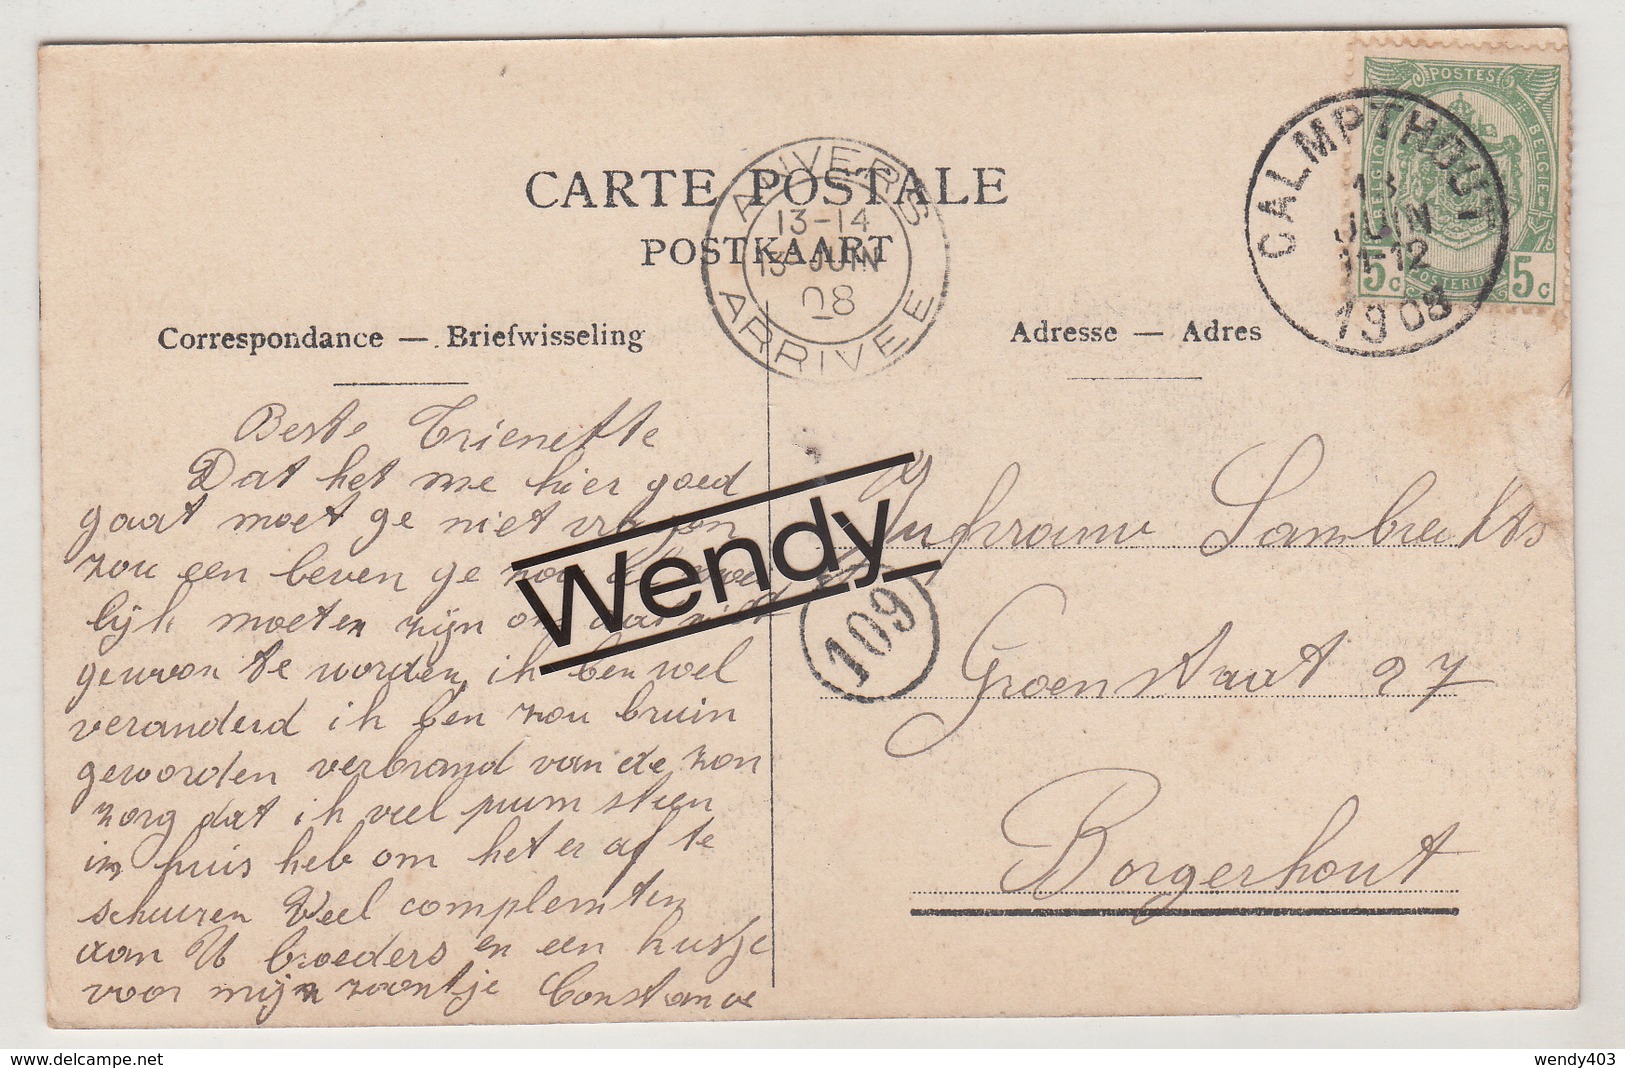 CARTE POSTALE
POSTKAART
ANVERS
13-14
13 JUIN
08
ARRIVEE
CALMPTHOUT
13
JUIN
11-12
1908
POSTES
BELGIQUE
BELGIE
POSTERIJEN
5c 5c
Correspondance — Briefwisseling
Adresse — Adres
Beste Trienette
Dat het me hier goed
gaat moet ge niet vragen
zou een beven ge zou
lijk moeten zijn om daar niet
gewoon te worden, ik ben wel
veranderd ik ben zou bruin
geworden verbrand van de zon
zorg dat ik veel puim steen
in huis heb om het er af te
schuuren Veel complemten
aan U broeders en een kusje
voor mijn zoontje Constance
Jufvrouw Lambrechts
Groenstraat 27
Borgerhout
109
Wendy
© delcampe.net
wendy403